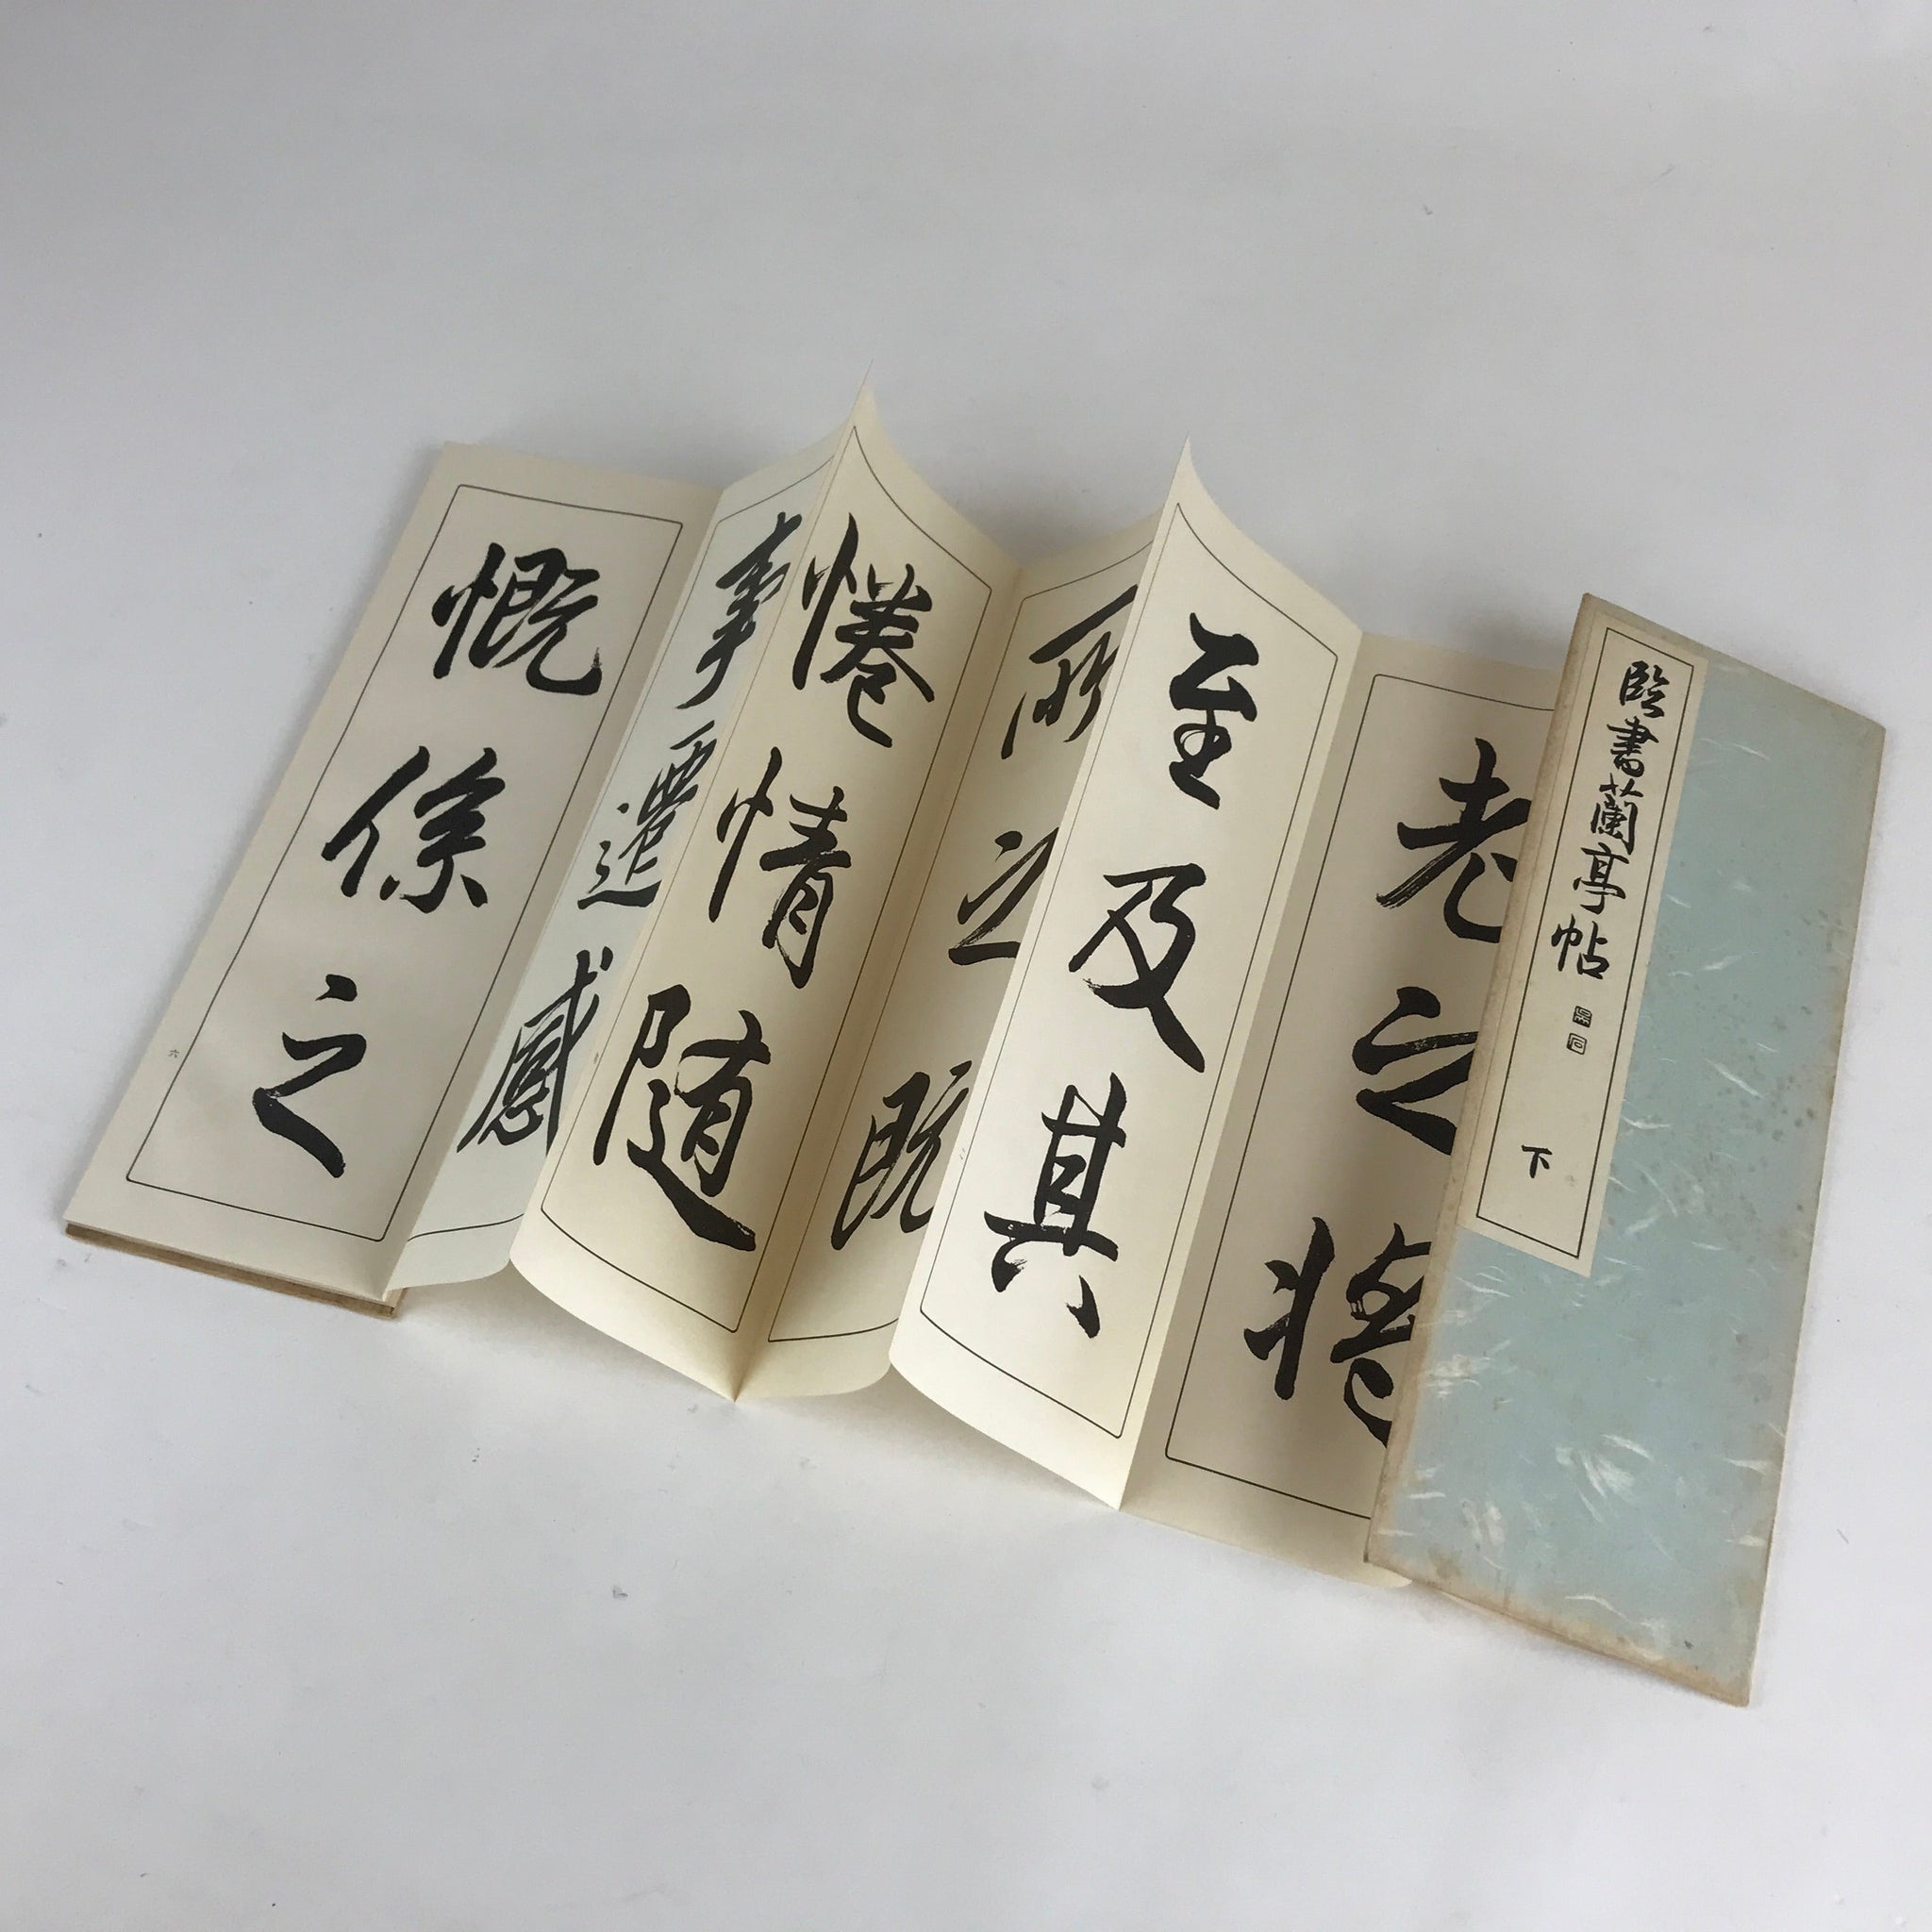 臨書蘭亭帖
下
老之將
至及其
所之既
惓情随
事遷感
慨係之
六